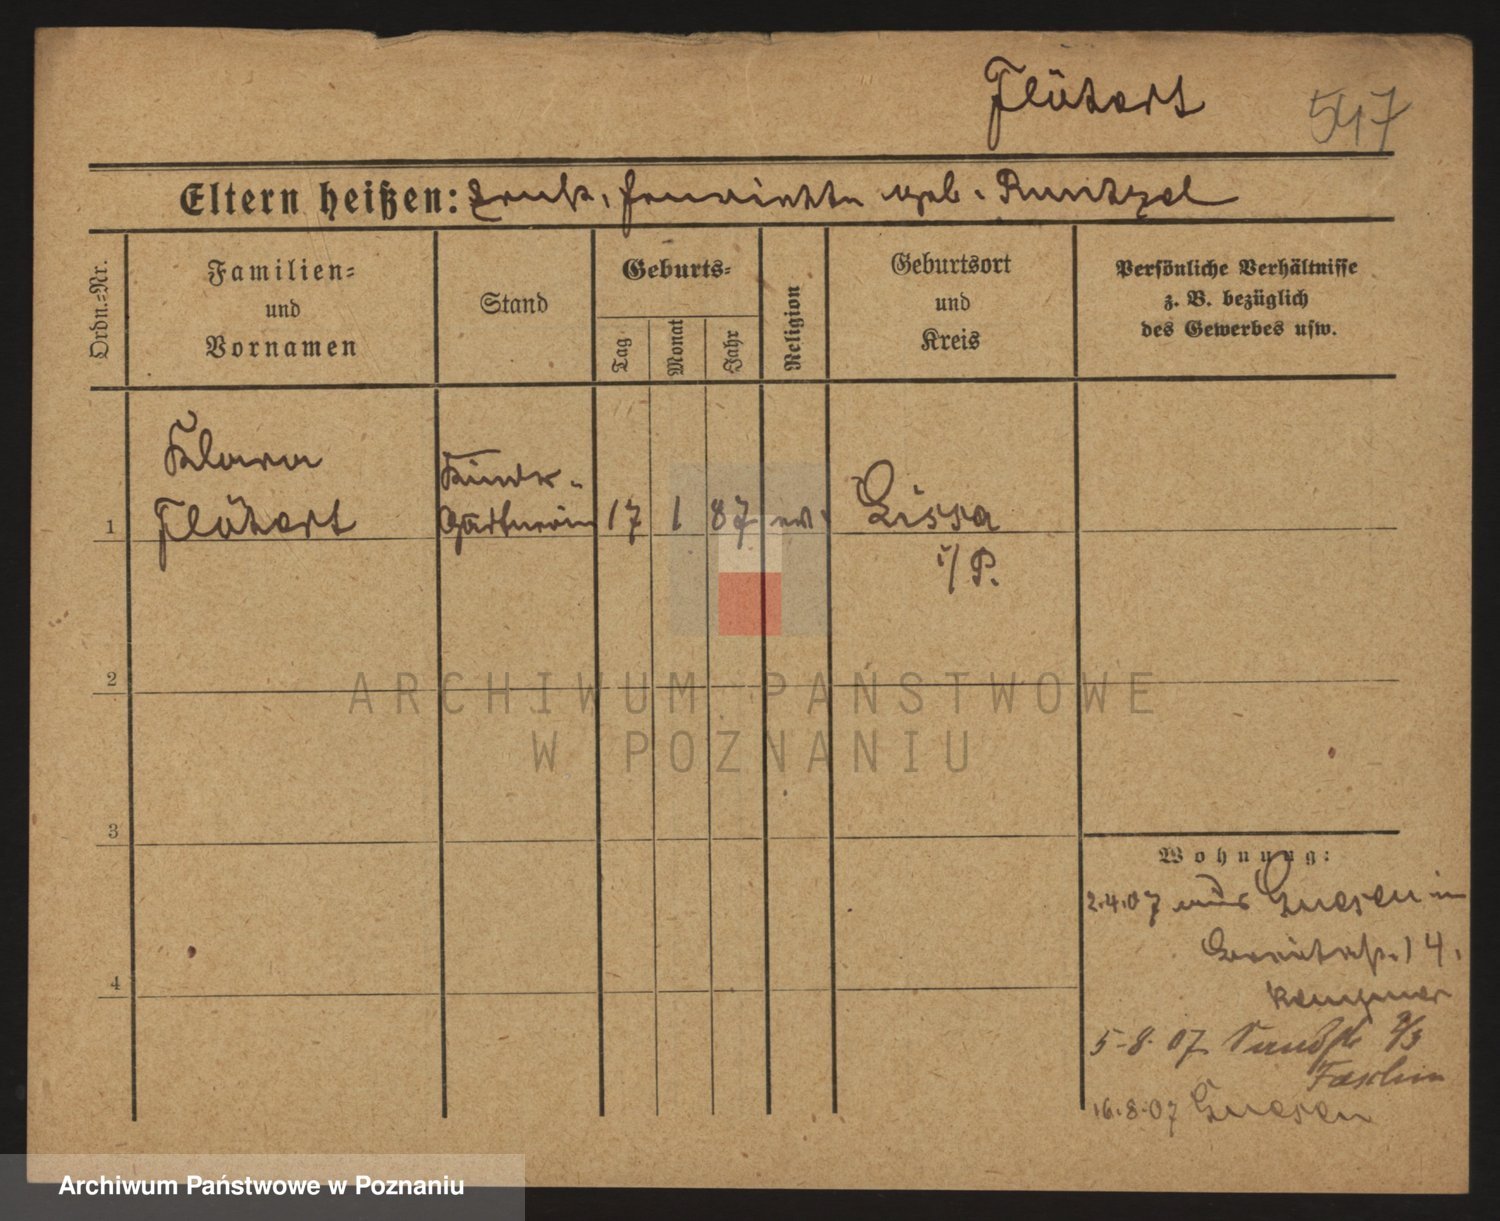 Flötert 547
Eltern heißen: Ernst, Henriette geb. Runtzel
Ordn.-Nr.
Familien-
und
Vornamen
Stand
Geburts-
Tag
Monat
Jahr
Religion
Geburtsort
und
Kreis
Persönliche Verhältnisse
z. B. bezüglich
des Gewerbes usw.
Klara
1 Flötert
Kinder-
Gärtnerin
17 1 87 ev
Lissa
i/P.
2
ARCHIWUM PAŃSTWOWE
W POZNANIU
3
Wohnung:
2.4.07 aus Gnesen in
14.
4
5-8.07
16.8.07 Gnesen
Archiwum Państwowe w Poznaniu